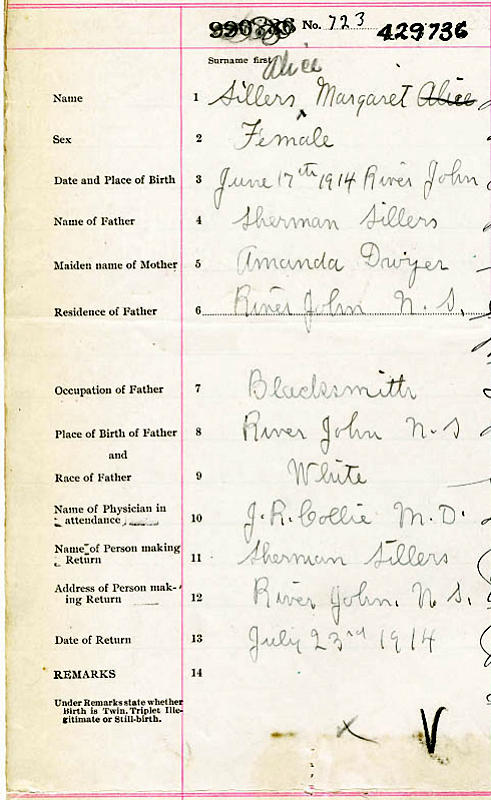 No. 723 429736
Surname first Alice
Name 1 Sillers, Margaret Alice
Sex 2 Female
Date and Place of Birth 3 June 17th 1914 River John
Name of Father 4 Sherman Sillers
Maiden name of Mother 5 Amanda Dwyer
Residence of Father 6 River John N. S.
Occupation of Father 7 Blacksmith
Place of Birth of Father 8 River John N. S
and
Race of Father 9 White
Name of Physician in
attendance 10 J. R. Collie M. D.
Name of Person making
Return 11 Sherman Sillers
Address of Person mak-
ing Return 12 River John, N. S.
Date of Return 13 July 23rd 1914
REMARKS 14
Under Remarks state whether
Birth is Twin, Triplet Ille-
gitimate or Still-birth.
x V